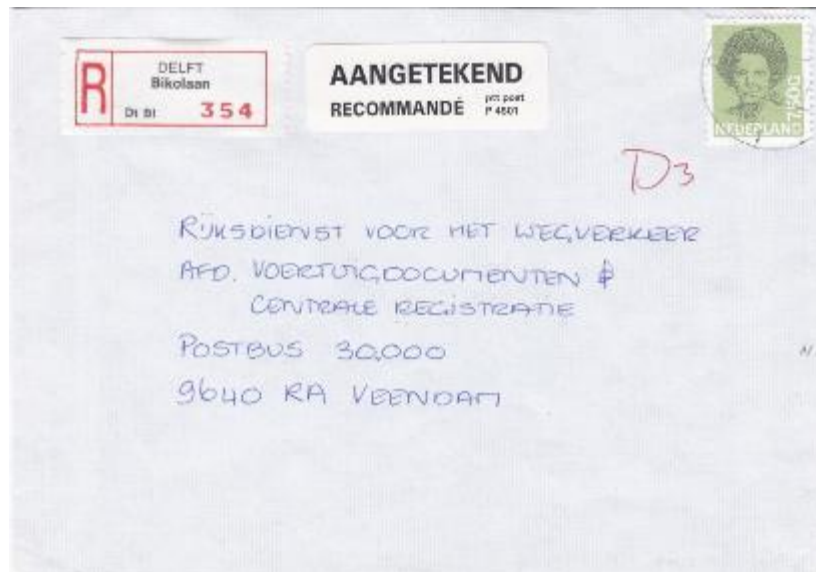 R
DELFT
Bikolaan
Dt Bl 354
AANGETEKEND
RECOMMANDÉ ptt post
P 4601
750c
NEDERLAND
D3
RIJKSDIENST VOOR HET WEGVERKEER
AFD. VOERTUIGDOCUMENTEN &
CENTRALE REGISTRATIE
POSTBUS 30.000
9640 RA VEENDAM